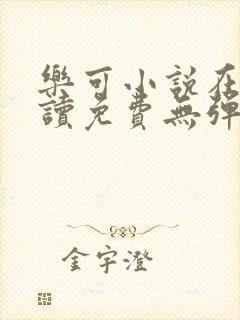 樂可小說在
讀免費無彈
金宇澄